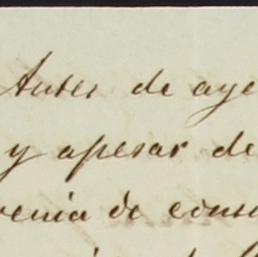 Antes de aye
y apesar de
venia de cons